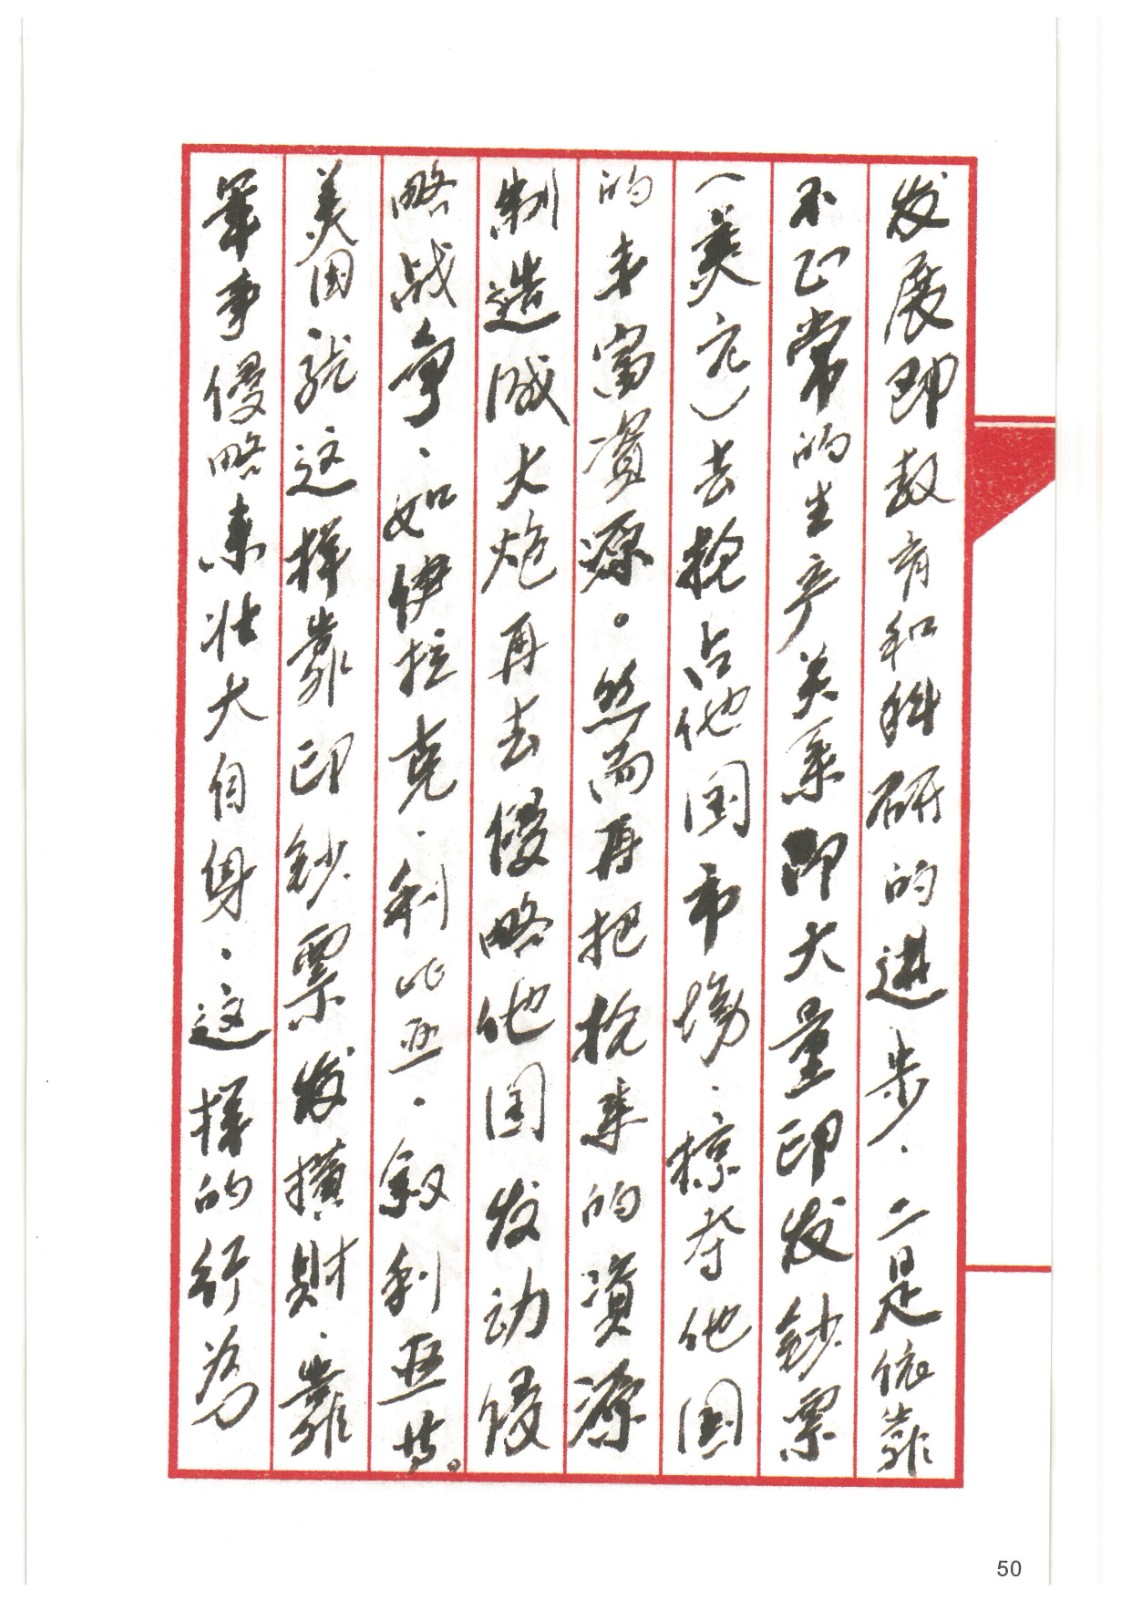 发展即教育和科研的进步、二是依靠
不正常的生产关系即大量印发钞票
（美元）去抢占他国市场、掠夺他国
的丰富资源。然而再把抢来的资源
制造成大炮再去侵略他国发动侵
略战争、如伊拉克、利比亚、叙利亚等。
美国就这样靠印钞票发横财、靠
军事侵略来壮大自身、这样的行为
50